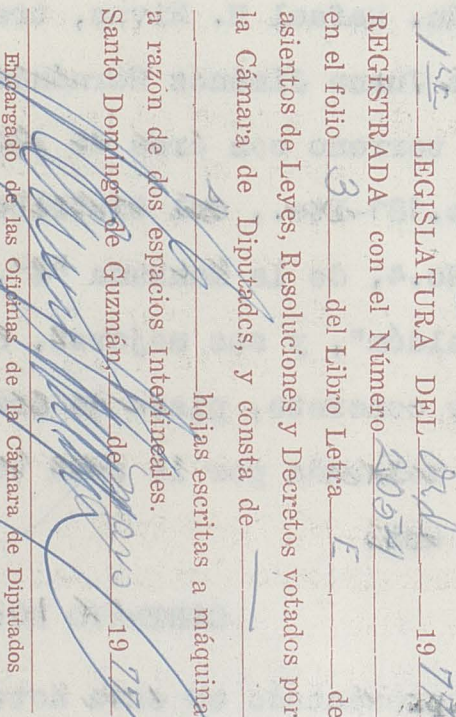 1ra LEGISLATURA DEL Ord 1977
REGISTRADA con el Número
en el folio 3 del Libro Letra E de
asientos de Leyes, Resoluciones y Decretos votados por
la Cámara de Diputados, y consta de
hojas escritas a máquina
a razón de dos espacios Interlineales.
Santo Domingo de Guzmán, de 1977
Encargado de las Oficinas de la Cámara de Diputados